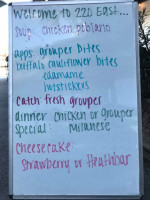 Welcome to 220 East...
Soup chicken poblano
apps grouper bites
buffalo cauliflower bites
edamame
potstickers
Catch fresh grouper
dinner chicken or grouper
special: Milanese
cheesecake
strawberry or Heathbar